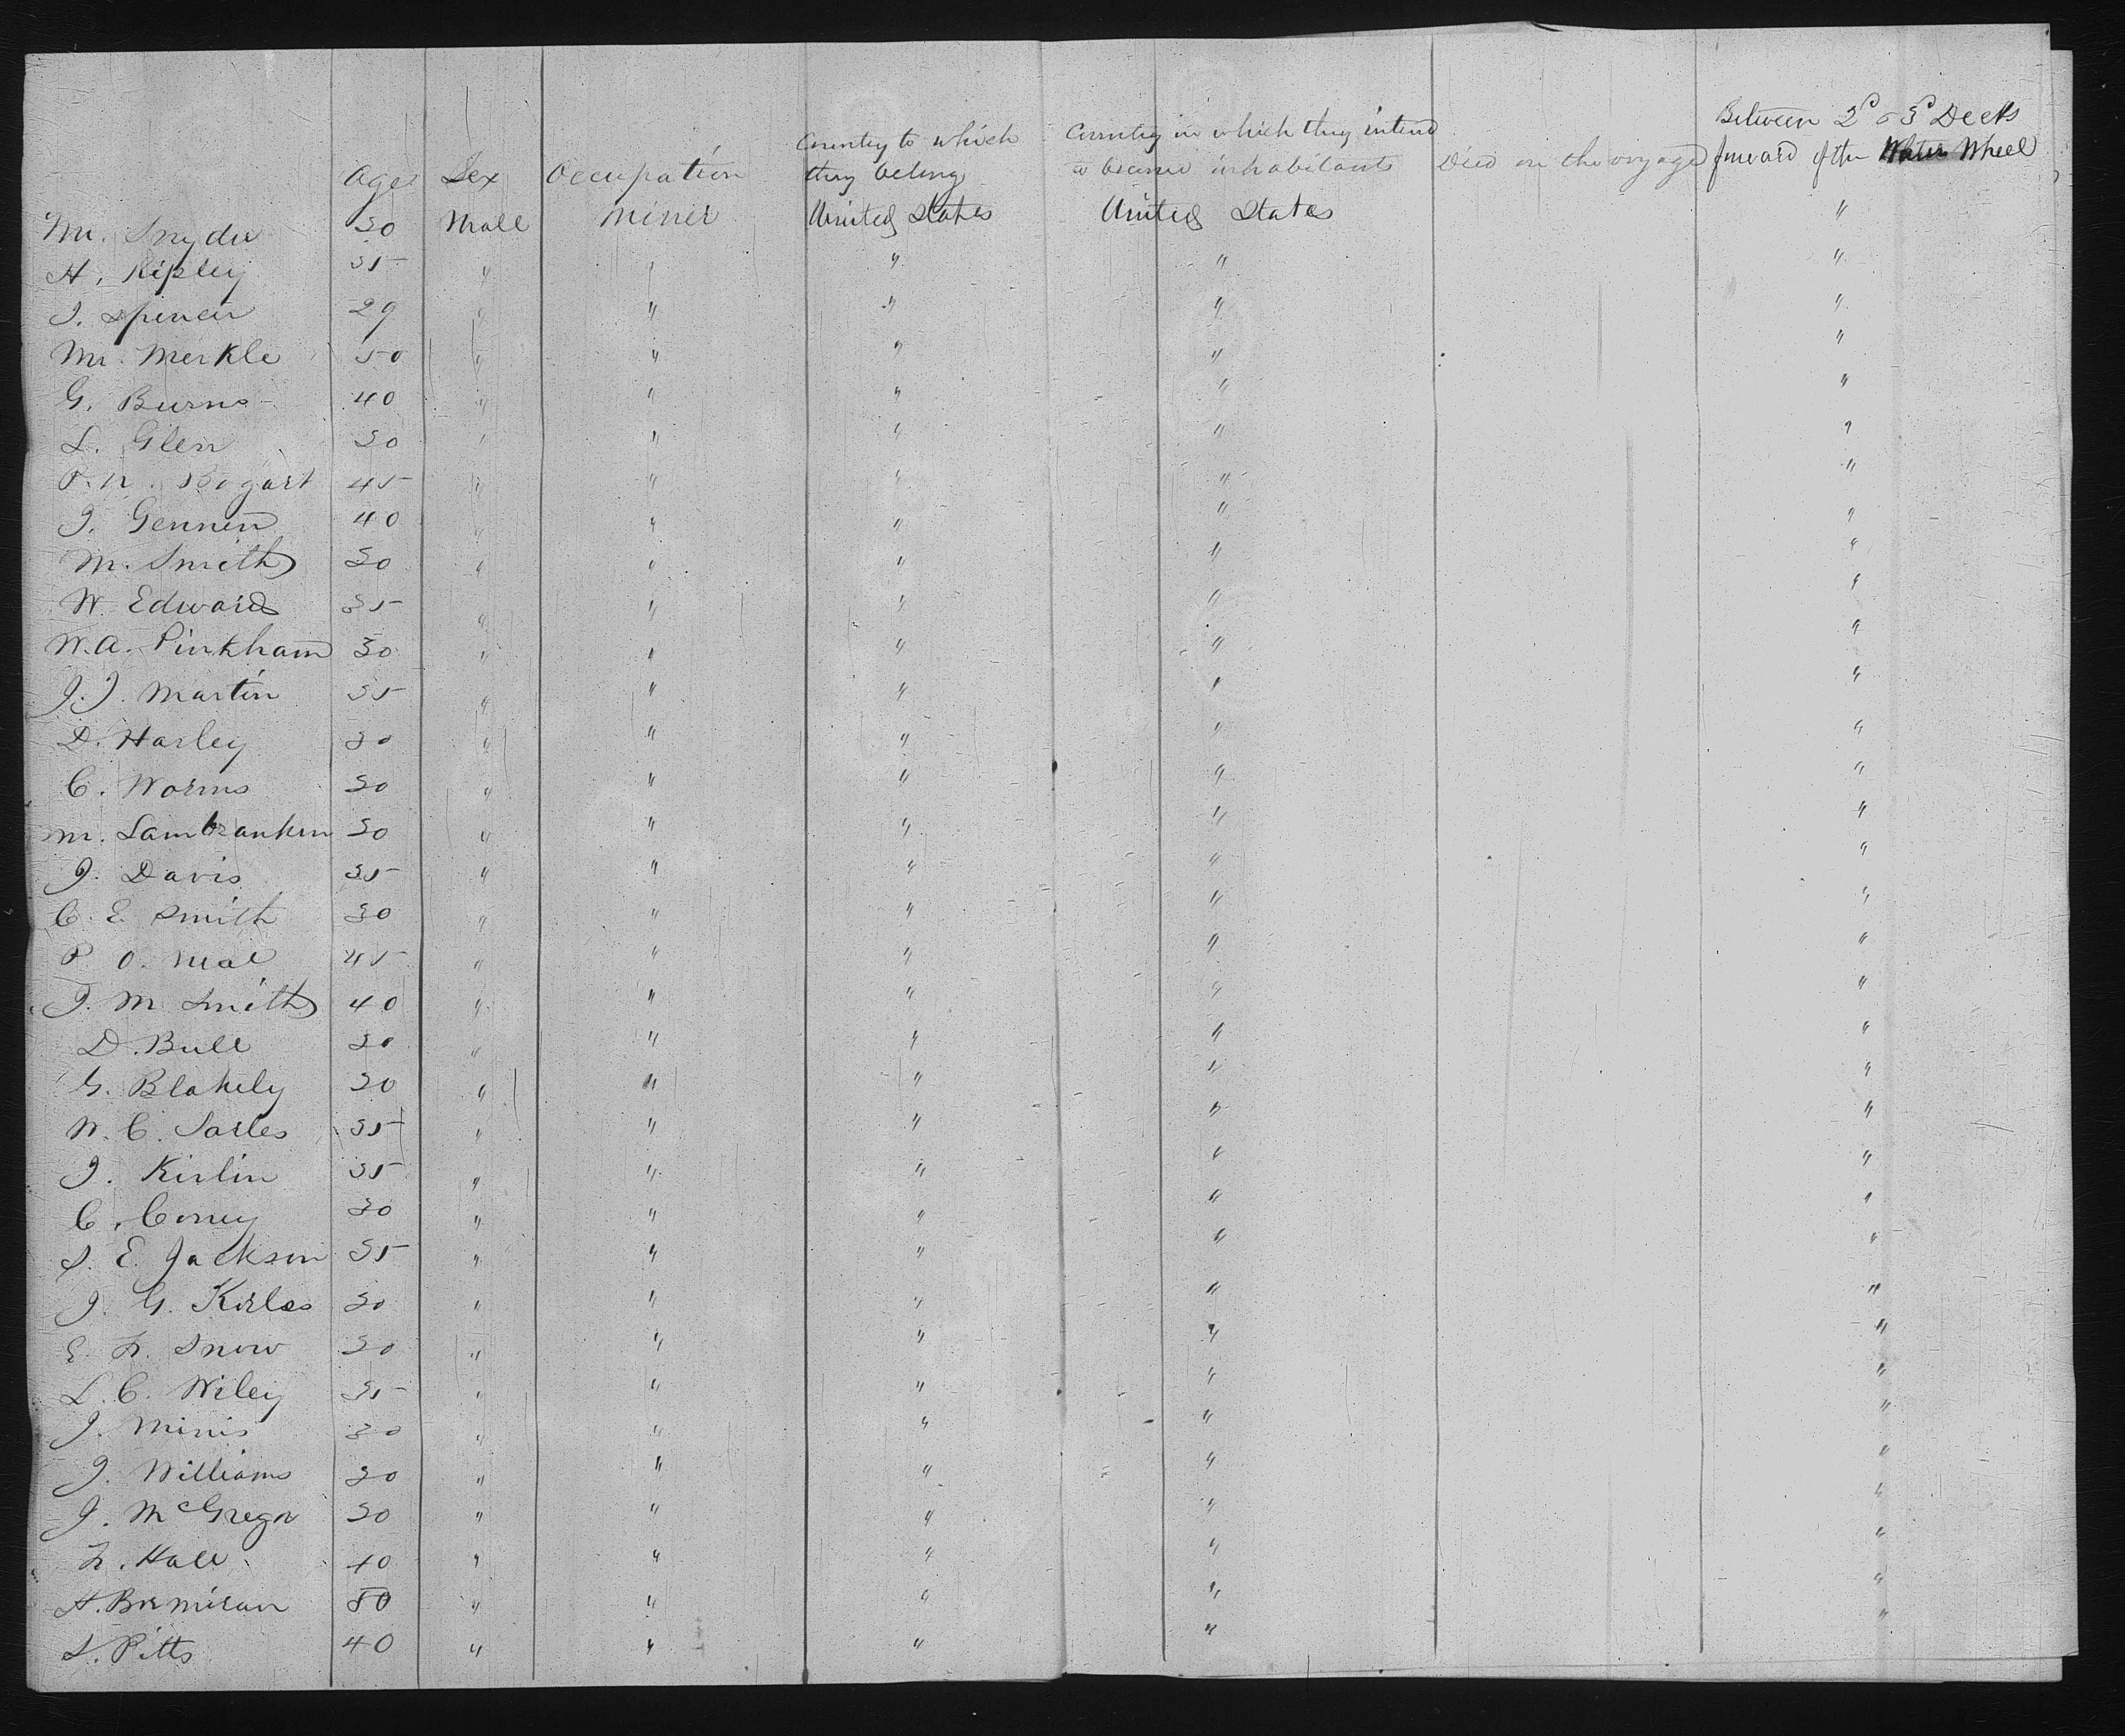 Between 2d & 3d Decks
Age Sex Occupation Country to which they belong Country in which they intend to become inhabitants Died on the voyage forward of the Water Wheel
Mr. Snyder 30 Male Miner United States United States "
H. Ripley 35 " " " " "
J. Spencer 29 " " " " "
Mr. Merkle 50 " " " " "
G. Burns 40 " " " " "
L. Glen 30 " " " " "
P. N. Bogart 45 " " " " "
J. Gennen 40 " " " " "
M. Smith 30 " " " " "
W. Edwards 35 " " " " "
W. A. Pinkham 30 " " " " "
J. J. Martin 35 " " " " "
D. Harley 30 " " " " "
C. Worms 30 " " " " "
M. Lambranken 30 " " " " "
J. Davis 35 " " " " "
C. E. Smith 30 " " " " "
P. O. Neal 45 " " " " "
J. M Smith 40 " " " " "
D. Bull 30 " " " " "
G. Blakely 30 " " " " "
W. C. Sarles 35 " " " " "
J. Kirlin 35 " " " " "
C. Coney 30 " " " " "
S. E. Jackson 35 " " " " "
J. G. Kirles 30 " " " " "
E. L. Snow 30 " " " " "
L. C. Wiley 35 " " " " "
J. Minis 30 " " " " "
J. Williams 30 " " " " "
J. McGregor 30 " " " " "
L. Hall 40 " " " " "
H. 50 " " " " "
S. Pitts 40 " " " "